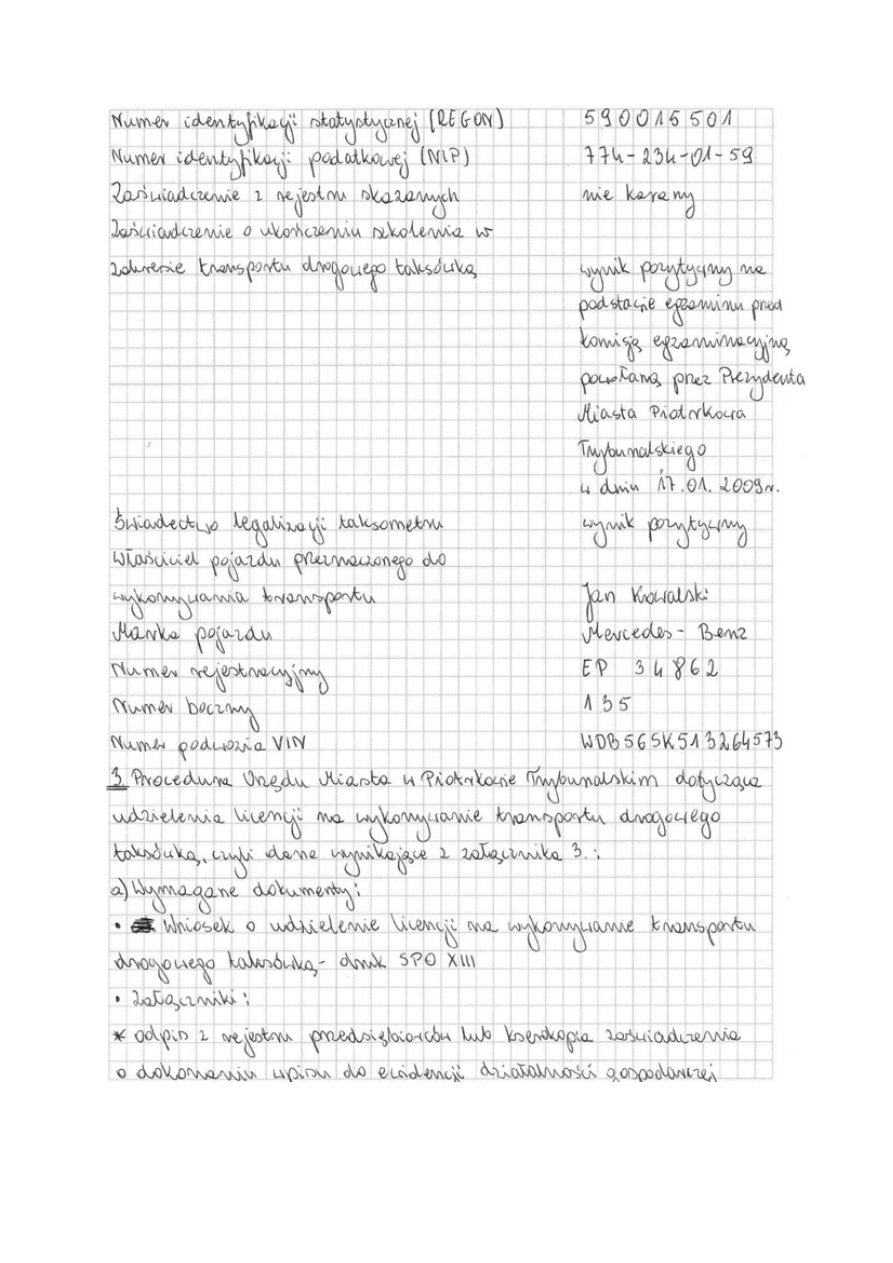 Numer identyfikacji statystycznej (REGON) 590015501
Numer identyfikacji podatkowej (NIP) 774-234-01-59
Zaświadczenie z rejestru skazanych nie karany
Zaświadczenie o ukończeniu szkolenia w
zakresie transportu drogowego taksówką wynik pozytywny na
podstawie egzaminu przed
komisją egzaminacyjną
powołaną przez Prezydenta
Miasta Piotrkowa
Trybunalskiego
w dniu 17.01.2009r.
Świadectwo legalizacji taksometru wynik pozytywny
Właściciel pojazdu przeznaczonego do
wykonywania transportu Jan Kowalski
Marka pojazdu Mercedes-Benz
Numer rejestracyjny EP 34862
Numer boczny 135
Numer podwozia VIN WDB565K513264573
3. Procedura Urzędu Miasta w Piotrkowie Trybunalskim dotycząca
udzielenia licencji na wykonywanie transportu drogowego
taksówką, czyli dane wynikające z załącznika 3.:
a) Wymagane dokumenty:
• Wniosek o udzielenie licencji na wykonywanie transportu
drogowego taksówką - druk SPO XIII
• Załączniki:
* odpis z rejestru przedsiębiorców lub kserokopia zaświadczenia
o dokonaniu wpisu do ewidencji działalności gospodarczej